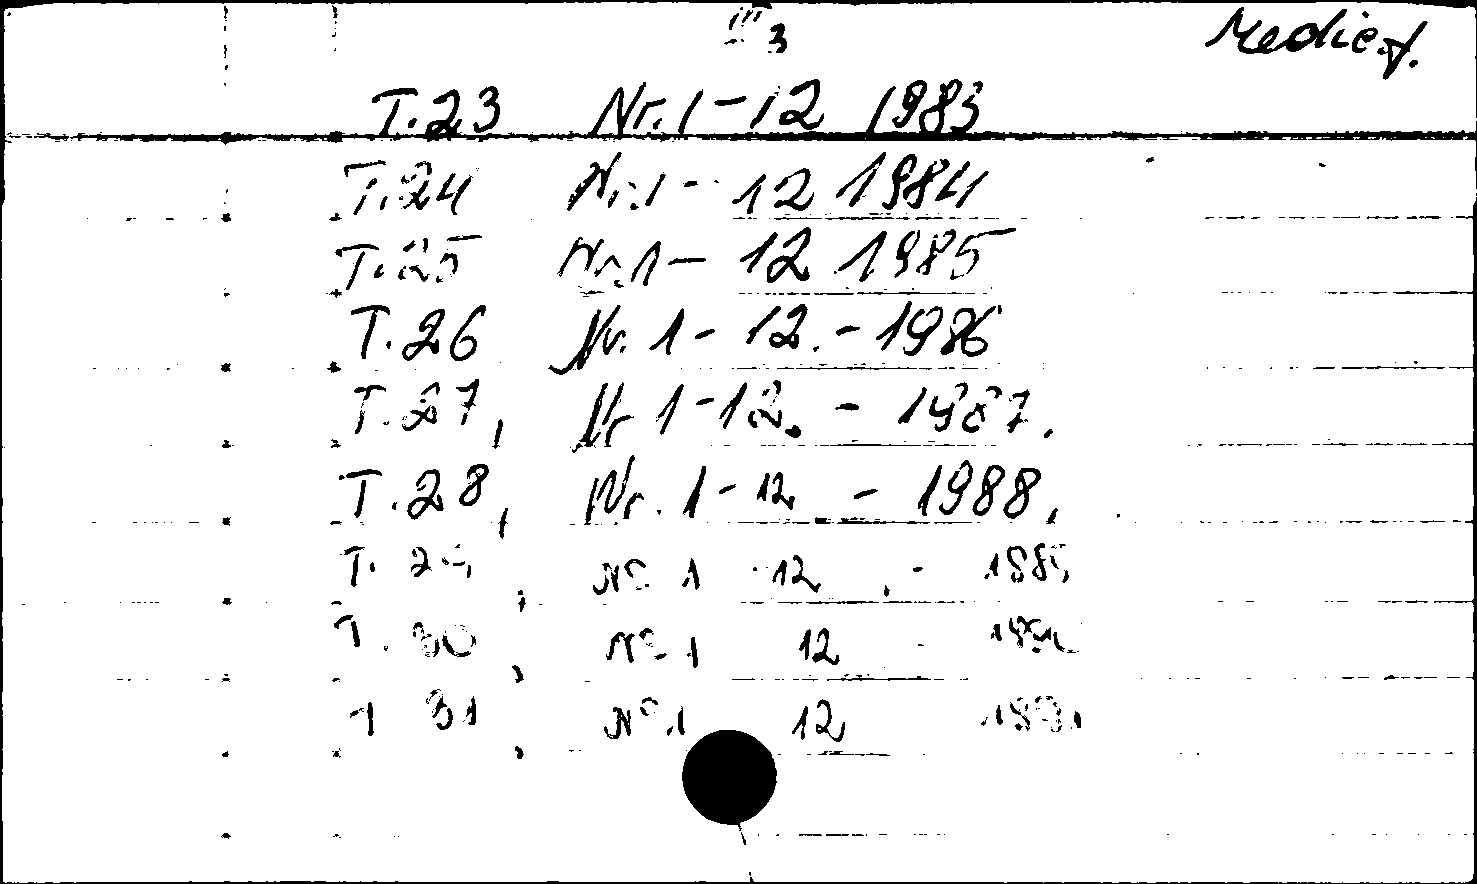 III 3
T.23 Nr. 1-12 1983
T.24 Nr. 1- 12 1984
T.25 Nr. 1- 12 1985
T.26 Nr. 1- 12. - 1986
T.27, Nr 1-12. - 1987.
T.28, Nr. 1-12 - 1988.
T. 29, Nº 1 - 12. - 1989
T. 30, Nº 1 12 - 1990
T 31, Nº 1 12 1991